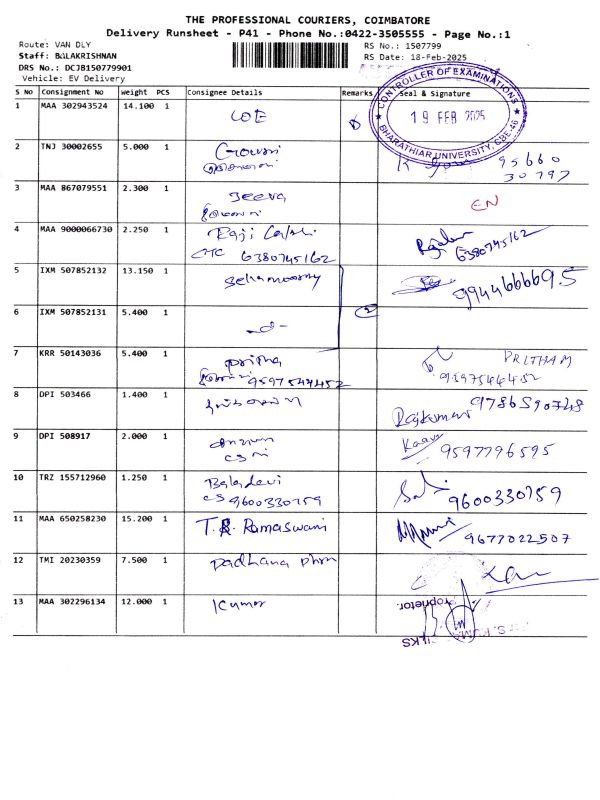 THE PROFESSIONAL COURIERS, COIMBATORE
Delivery Runsheet - P41 - Phone No.:0422-3505555 - Page No.:1
Route: VAN DLY RS No.: 1507799
Staff: BALAKRISHNAN RS Date: 18-Feb-2025
DRS No.: DCJB150779901
Vehicle: EV Delivery
S No Consignment No Weight PCS Consignee Details Remarks Seal & Signature
CONTROLLER OF EXAMINATIONS
19 FEB 2025
BHARATHIAR UNIVERSITY, CBE-46
1 MAA 302943524 14.100 1 COE
2 TNJ 30002655 5.000 1 Gowri 95660
30797
3 MAA 867079551 2.300 1 Jeeva EN
4 MAA 9000066730 2.250 1 Raji
6380745162 6380745162
5 IXM 507852132 13.150 1 9944666695
6 IXM 507852131 5.400 1 -d- 2
7 KRR 50143036 5.400 1 PRITHAM
9597544452 9597544452
8 DPI 503466 1.400 1 Rajkumar 9786590748
9 DPI 508917 2.000 1 9597796595
10 TRZ 155712960 1.250 1 Baladevi
CS 9600330759 9600330759
11 MAA 650258230 15.200 1 T.R. Ramaswani 9677022507
12 TMI 20230359 7.500 1
13 MAA 302296134 12.000 1 Kumar
Proprietor.